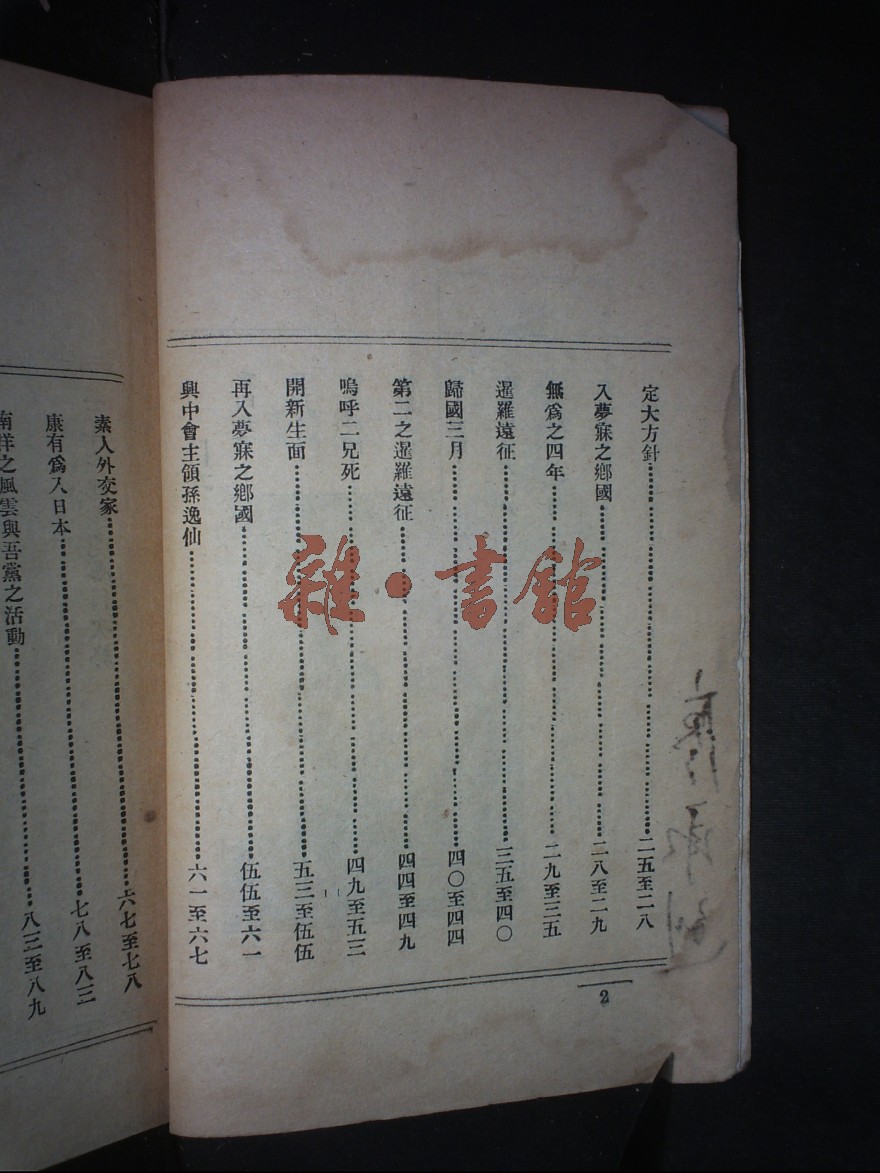 定大方針 二五至二八
入夢寐之鄉國 二八至二九
無爲之四年 二九至三五
暹羅遠征 三五至四〇
歸國三月 四〇至四四
第二之暹羅遠征 四四至四九
嗚呼二兄死 四九至五三
開新生面 五三至伍伍
再入夢寐之鄉國 伍伍至六一
興中會主領孫逸仙 六一至六七
2
素人外交家 六七至七八
康有爲入日本 七八至八三
南洋之風雲與吾黨之活動 八三至八九
雜·書館